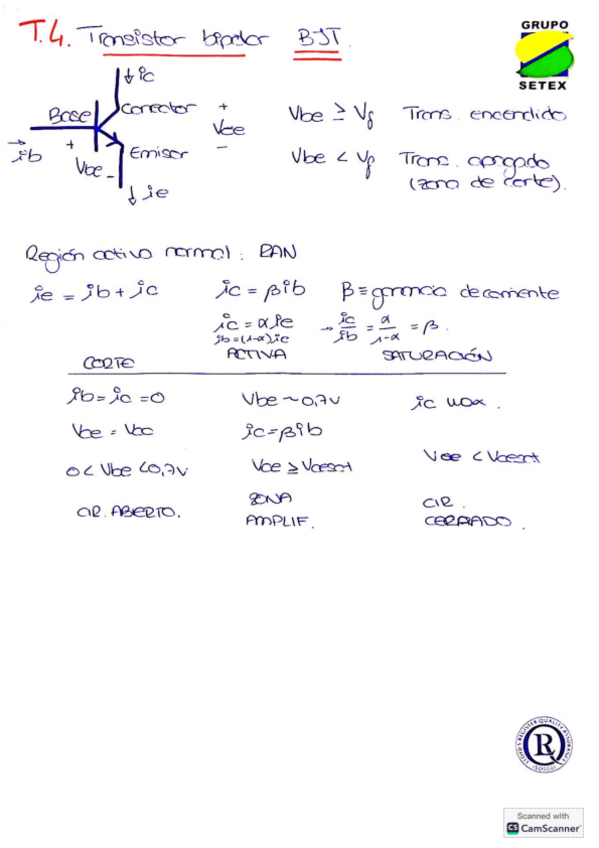 T.4. Transistor bipolar BJT.
GRUPO
SETEX
↓ic
Base
Conector
+
Vce
-
Vbe ≥ Vf Trans. encendido
→
ib
+
Vbe -
Emisor
↓ie
Vbe < Vf Trans. apagado
(zona de corte).
Región activa normal: RAN
ie = ib + ic ic = βib β ≡ ganancia de corriente
ic = αie → ic/ib = α/1-α = β.
ib = (1-α)ic
CORTE ACTIVA SATURACIÓN
ib = ic = 0 Vbe ~ 0,7V ic max.
Vce = Vcc ic = βib
0 < Vbe < 0,7V Vce ≥ Vcesat Vce < Vcesat
CIR. ABIERTO. ZONA AMPLIF. CIR. CERRADO.
LLOYD'S REGISTER QUALITY ASSURANCE
R
Scanned with
CS CamScanner